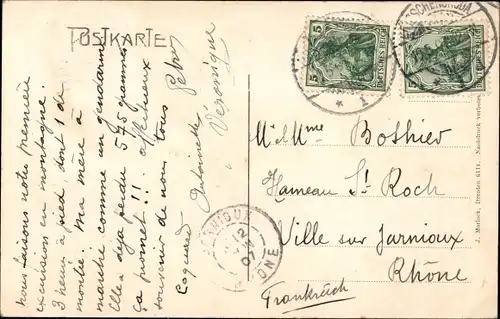 POSTKARTE
nous faisons notre première
excursion en montagne.
3 heures à pied dont 1 de
montée. Ma mère a
marché comme un gendarme
Elle a déjà perdu 575 grammes
ça promet !! affectueux
souvenir de nous tous
Coquard Antoinette
Véronique
5
DEUTSCHES REICH
5
M et Mme Bothier
Hameau St Roch
Ville sur Jarnioux
Rhône
Frankreich
JARNIOUX
12
07
RHONE
J. Matlick, Dresden 6174. Nachdruck verboten